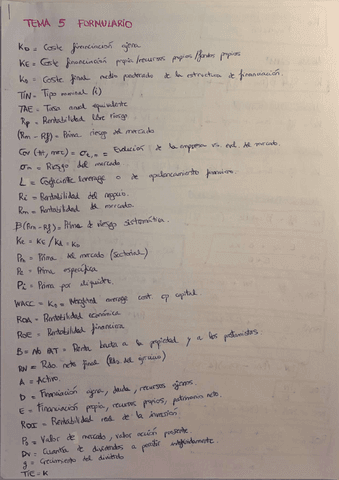 TEMA 5 FORMULARIO
KD = Coste financiación ajena
KE = Coste financiación propia/recursos propios/fondos propios
K0 = Coste final medio ponderado de la estructura de financiación.
TIN = Tipo nominal (i)
TAE = Tasa anual equivalente
RF = Rentabilidad libre riesgo
(Rm - Rf) = Prima riesgo del mercado
= Evolución de la empresa vs evol. del mercado.
σm = Riesgo del mercado
L = Coeficiente leverage o de apalancamiento financiero.
Ri = Rentabilidad del negocio.
Rm = Rentabilidad de mercado.
β(Rm - Rf) = Prima de riesgo sistemática.
Pm = Prima del mercado (sectorial)
Pe = Prima específica
Pi = Prima por iliquidez.
WACC = K0 = Weighted average cost of capital
ROA = Rentabilidad económica.
ROE = Rentabilidad financiera
B = Renta bruta a la propiedad y a los
BN = Rdo. neto final (Rdo. del ejercicio)
A = Activo.
D = Financiación ajena, deuda, recursos ajenos.
E = Financiación propia, recursos propios, patrimonio neto.
ROI = Rentabilidad real de la inversión.
P0 = Valor de mercado, valor acción presente
Dv = Cuantía de dividendos a percibir
g = Crecimiento del dividendo
TIE = K